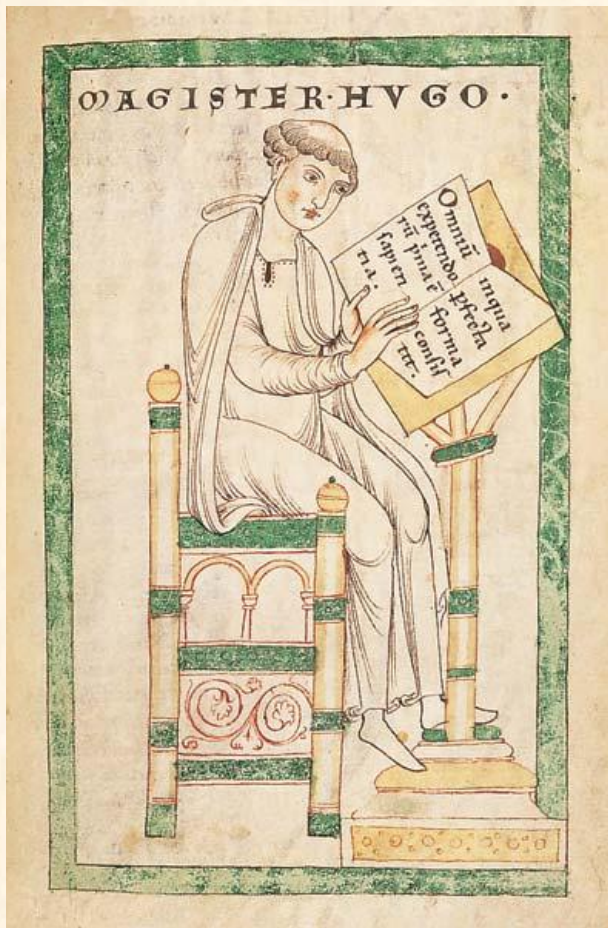 MAGISTER·HVGO·
Omniū
expetendo
rū p'ma ē
sapien
tia.
inqua
ꝑfecta
forma
consis
tit.